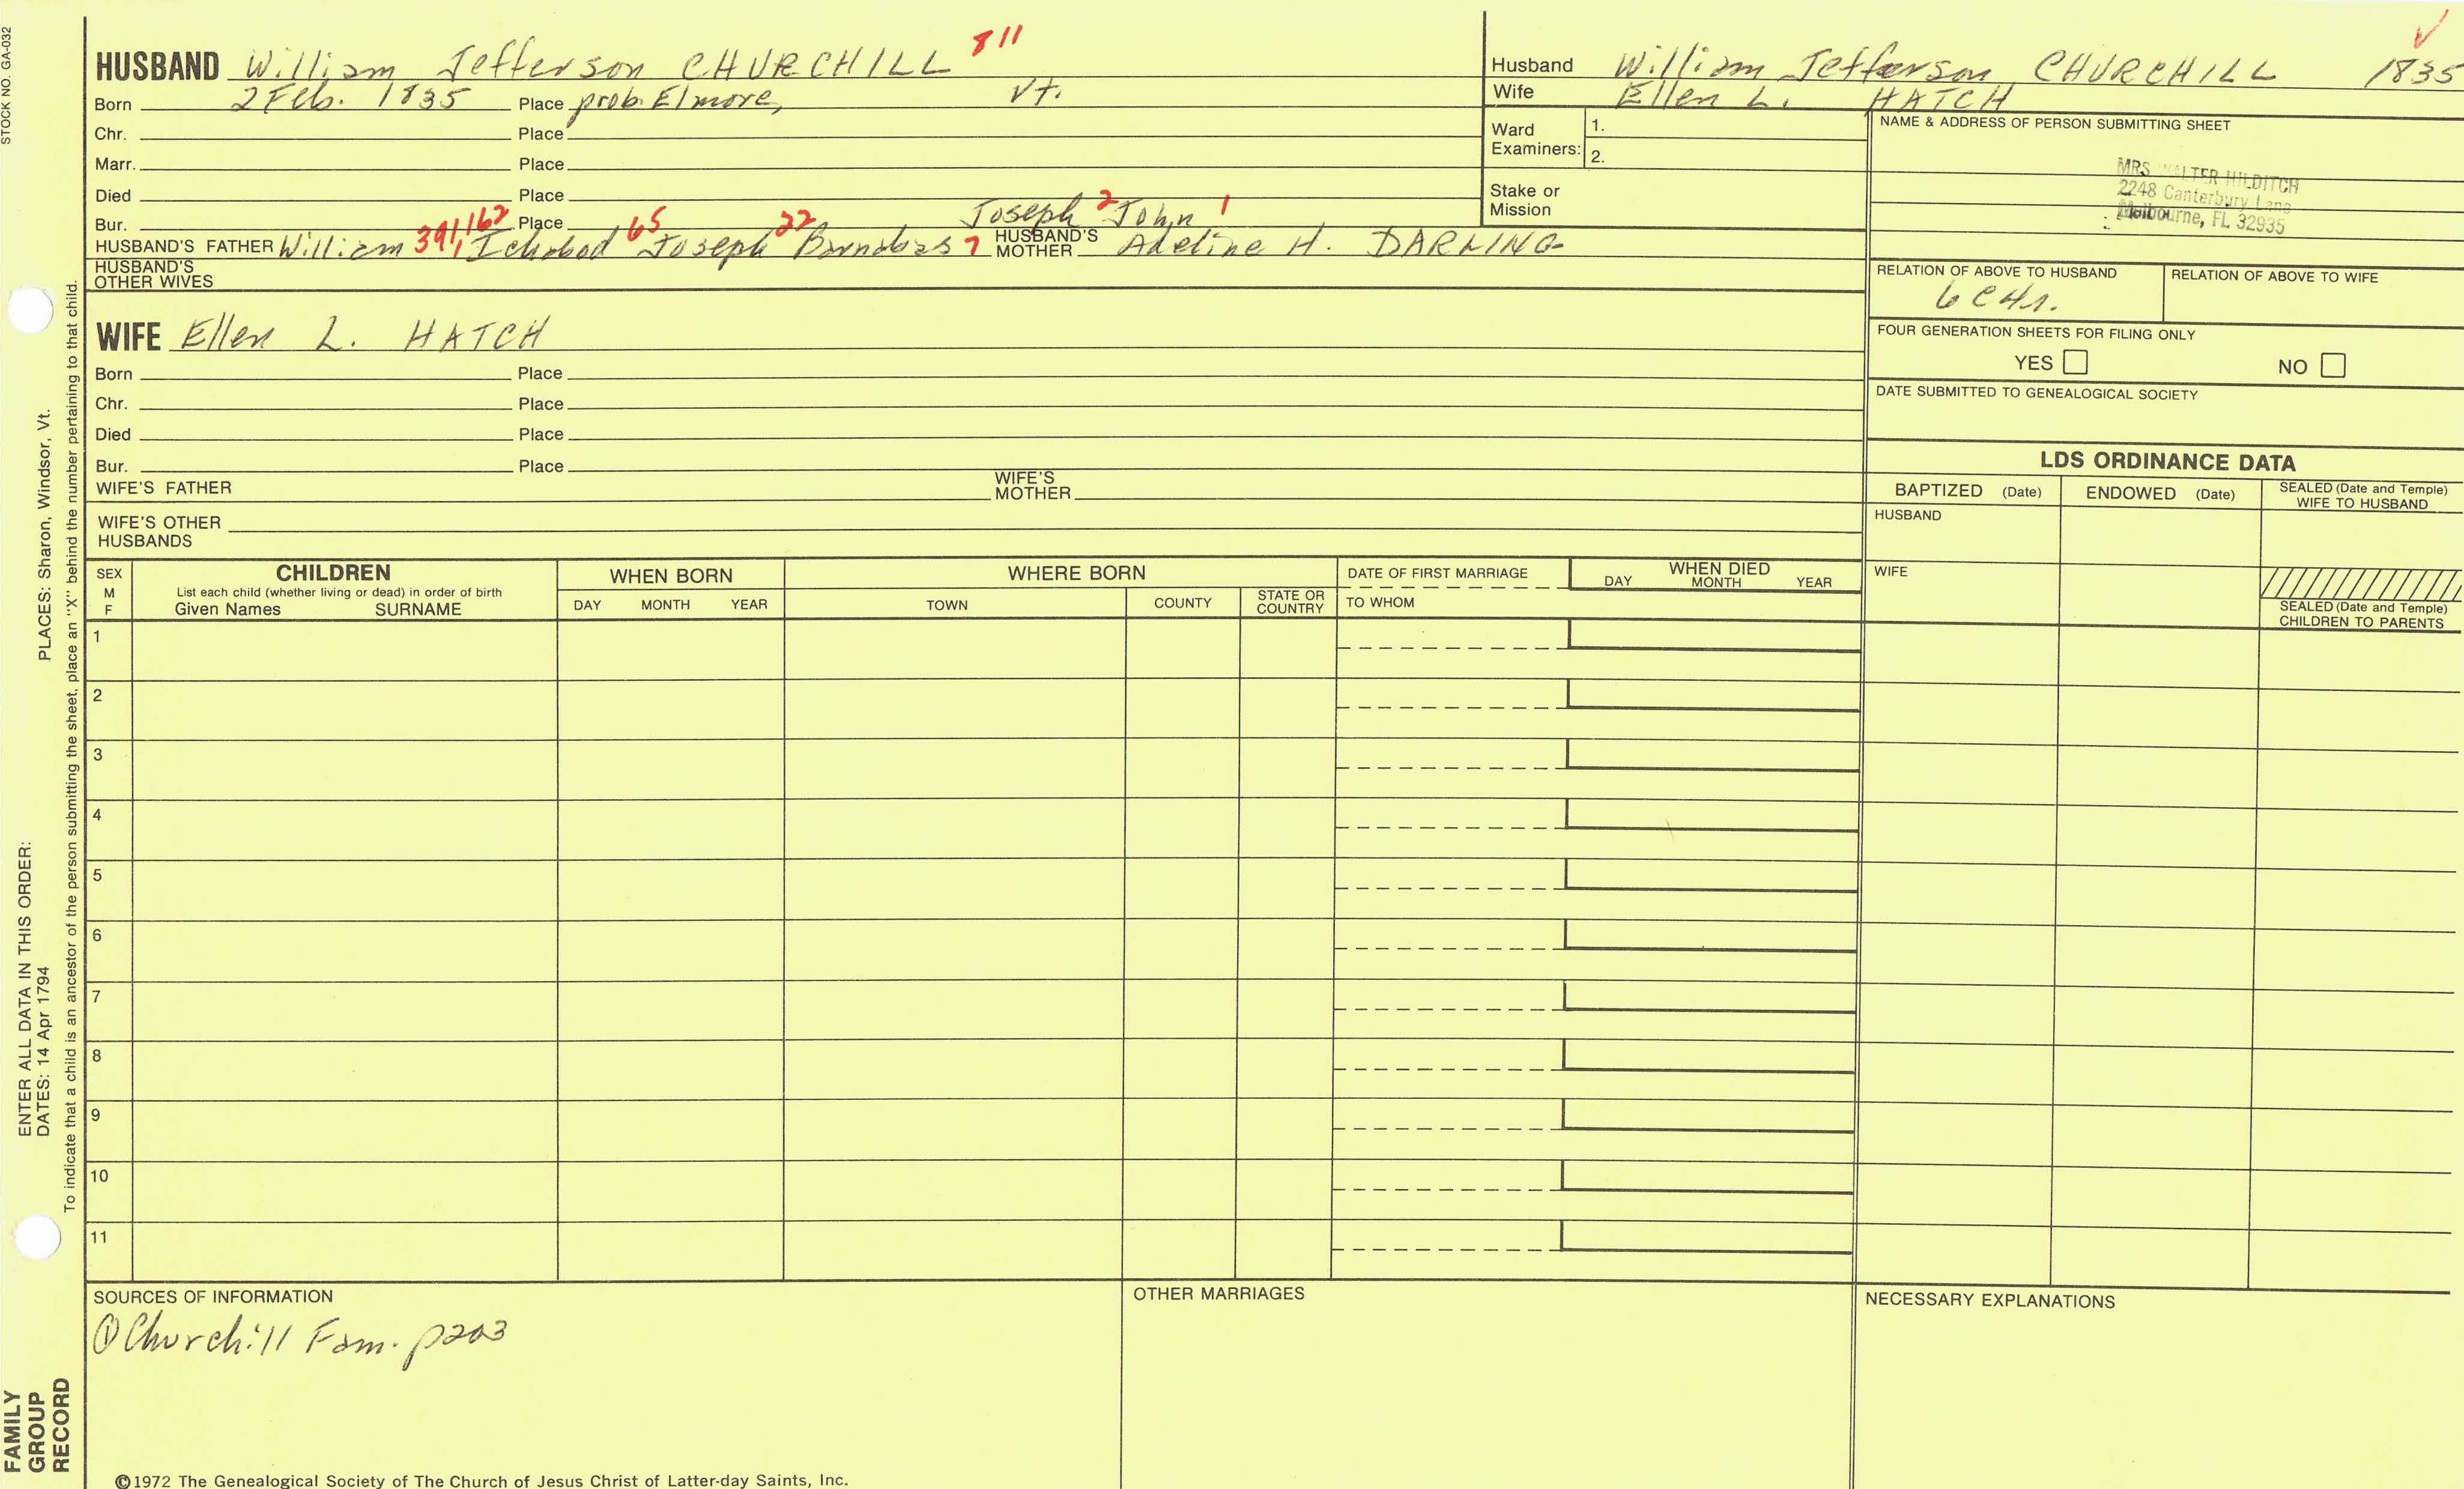 STOCK NO. GA-032
HUSBAND William Jefferson CHURCHILL 811
Born 2 Feb. 1835 Place prob. Elmore, Vt.
Chr. Place
Marr. Place
Died Place
Bur. Place Joseph 2 John 1
HUSBAND'S FATHER William 391, 162 Ichabod 65 Joseph 22 Barnabas 7 HUSBAND'S MOTHER Adeline H. DARLING
HUSBAND'S OTHER WIVES
WIFE Ellen L. HATCH
Born Place
Chr. Place
Died Place
Bur. Place
WIFE'S FATHER WIFE'S MOTHER
WIFE'S OTHER HUSBANDS
Husband William Jefferson CHURCHILL 1835
Wife Ellen L. HATCH
Ward Examiners: 1.
2.
Stake or Mission
NAME & ADDRESS OF PERSON SUBMITTING SHEET
MRS WALTER HILDITCH
2248 Canterbury Lane
Melbourne, FL 32935
RELATION OF ABOVE TO HUSBAND RELATION OF ABOVE TO WIFE
6C4r.
FOUR GENERATION SHEETS FOR FILING ONLY
YES NO
DATE SUBMITTED TO GENEALOGICAL SOCIETY
LDS ORDINANCE DATA
BAPTIZED (Date) ENDOWED (Date) SEALED (Date and Temple) WIFE TO HUSBAND
HUSBAND
WIFE
SEALED (Date and Temple) CHILDREN TO PARENTS
SEX M F
CHILDREN
List each child (whether living or dead) in order of birth
Given Names SURNAME
WHEN BORN
DAY MONTH YEAR
WHERE BORN
TOWN COUNTY STATE OR COUNTRY
DATE OF FIRST MARRIAGE
TO WHOM
WHEN DIED
DAY MONTH YEAR
1
2
3
4
5
6
7
8
9
10
11
SOURCES OF INFORMATION
① Churchill Fam. p203
OTHER MARRIAGES
NECESSARY EXPLANATIONS
©1972 The Genealogical Society of The Church of Jesus Christ of Latter-day Saints, Inc.
FAMILY GROUP RECORD
ENTER ALL DATA IN THIS ORDER:
DATES: 14 Apr 1794 PLACES: Sharon, Windsor, Vt.
To indicate that a child is an ancestor of the person submitting the sheet, place an "X" behind the number pertaining to that child.